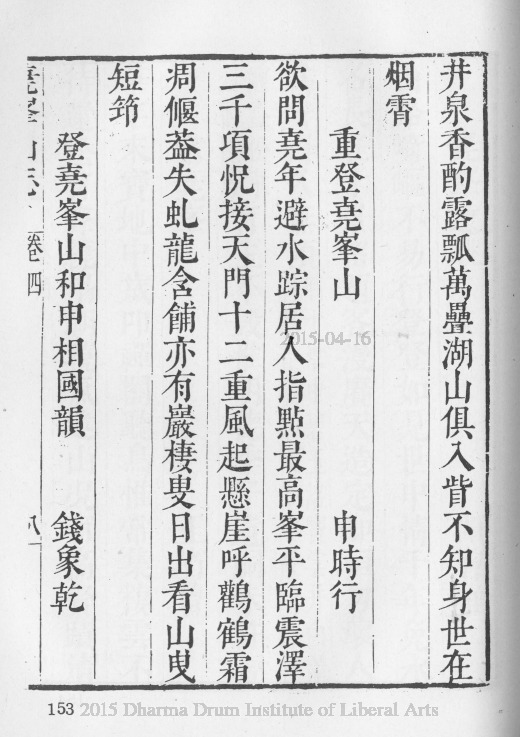 井泉香酌露瓢萬疊湖山俱入眥不知身世在
烟霄
重登堯峯山 申時行
欲問堯年避水踪居人指點最高峯平臨震澤
三千項怳接天門十二重風起懸崖呼鸛鶴霜
凋偃葢失虬龍含餔亦有巖棲叟日出看山曳
短笻
登堯峯山和申相國韻 錢象乾
堯峯山志 卷四 八
2015-04-16
153 2015 Dharma Drum Institute of Liberal Arts